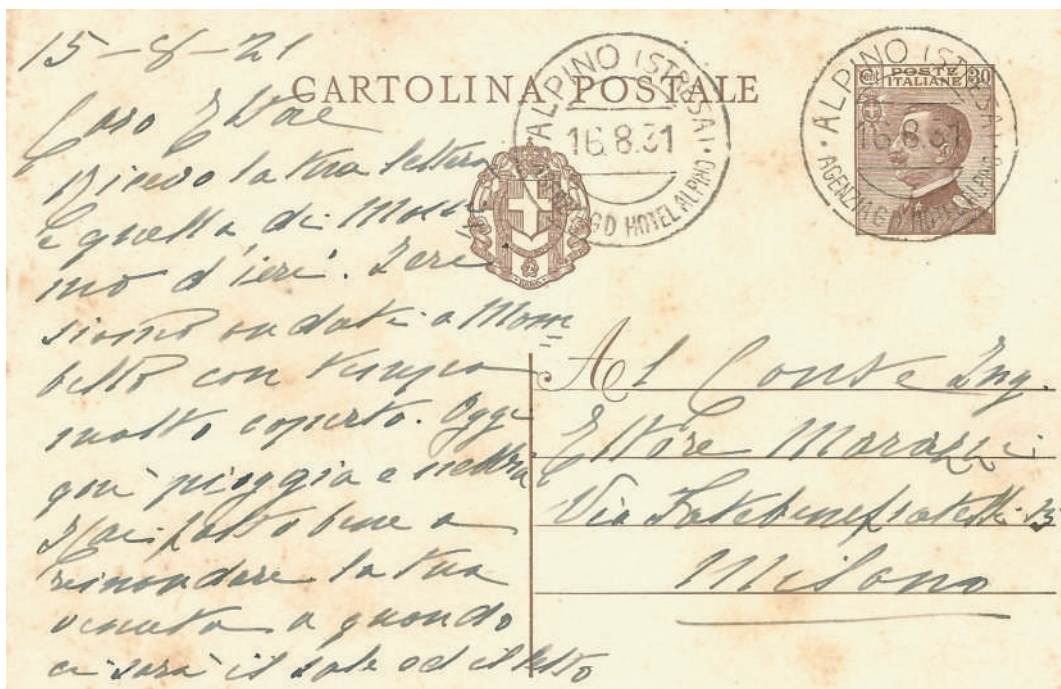 15-8-21
CARTOLINA POSTALE
ALPINO (STRESA)
16.8.31
AGENZIA GD HOTEL ALPINO
ALPINO (STRESA)
16.8.31
AGENZIA GD HOTEL ALPINO
Ct POSTE ITALIANE 30
Caro Ettore
Ricevo la tua lettera
e quella di
d'ieri. Ieri
siamo andati a Mom
bello con tempo
molto coperto. Oggi
qui pioggia e nebbia
Hai fatto bene a
rimandare la tua
venuta a quando
ci sarà il sole ed il letto
Al Conte Ing.
Ettore Marazzi
Via Fatebenefratelli
Milano